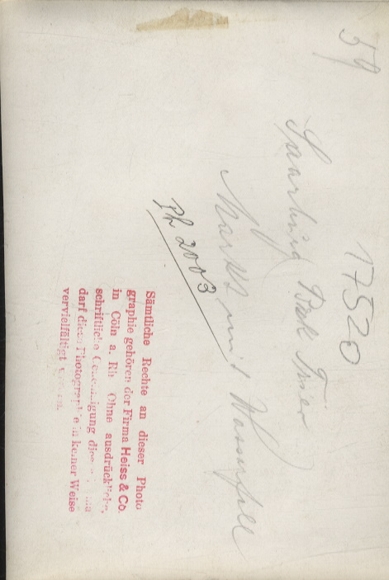 59
17520
Saarburg Bez. Trier
Markt mit Wasserfall
Ph 2003
Sämtliche Rechte an dieser Photo
graphie gehören der Firma Heiss & Co.
in Cöln a. Rh. Ohne ausdrückliche
schriftliche
darf diese Photographie in keiner Weise
vervielfältigt